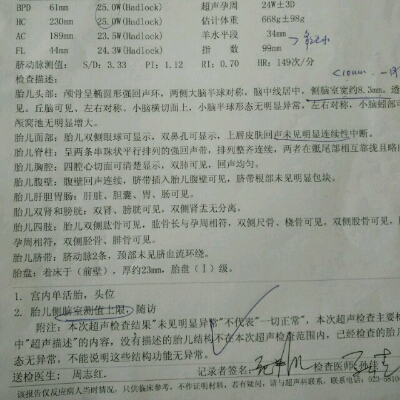 BPD 61mm 25.0W(Hadlock) 超声孕周 24W±3D
HC 230mm 25.0W(Hadlock) 估计体重 668g±98g
AC 189mm 23.5W(Hadlock) 羊水平段 34mm
FL 44mm 24.3W(Hadlock) 指数 99mm
脐动脉测值: S/D: 3.33 PI: 1.12 RI: 0.70 HR: 149次/分
检查描述:
胎儿头部: 颅骨呈椭圆形强回声环, 两侧大脑半球对称, 脑中线居中, 侧脑室宽约8.3mm, 透
见, 丘脑可见, 左右对称, 小脑横切面上, 小脑半球形态无明显异常, 左右对称, 小脑蚓部可
颅窝池无明显增大。
胎儿面部: 胎儿双侧眼球可显示, 双鼻孔可显示, 上唇皮肤回声未见明显连续性中断。
胎儿脊柱: 呈两条串珠状平行排列的强回声带, 排列整齐连续, 两者在骶尾部相互靠拢且略向
胎儿胸腔: 四腔心切面可清楚显示, 双肺可见, 回声均匀。
胎儿腹壁: 腹壁回声连续, 脐带插入胎儿腹壁可见, 脐带根部未见明显包块。
胎儿肝胆胃肠: 肝脏、胆囊、胃、肠可见。
胎儿双肾和膀胱: 双肾、膀胱可见, 双侧肾盂无分离。
胎儿四肢: 胎儿双侧肱骨可见, 肱骨长与孕周相符, 双侧尺骨、桡骨可见, 双侧股骨可见,
孕周相符, 双侧胫骨、腓骨可见。
胎儿脐带: 脐动脉2条, 颈部未见脐血流环绕。
胎盘: 着床于 (前壁), 厚约23mm, 胎盘 (I) 级。
1. 宫内单活胎, 头位
2. 胎儿侧脑室测值上限, 随访
附注: 本次超声检查结果"未见明显异常"不代表"一切正常", 本次超声检查主要检
中"超声描述"的内容, 没有描述的胎儿结构不在本次超声检查范围内, 已经检查的胎儿
态无异常, 不能说明这些结构功能无异常。
送检医生: 周志红. 记录者签名: 检查医师: 孙佳
该报告仅反应病人当时情况, 只供临床参考, 不作证明材料, 若有疑问, 请与超声科联系, 联系电话: 023-5810